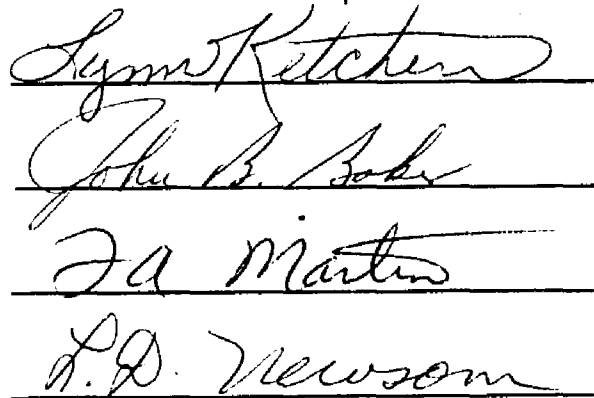 Lynn Ketchens
John B. Baker
F A Martin
L. D. Newsom